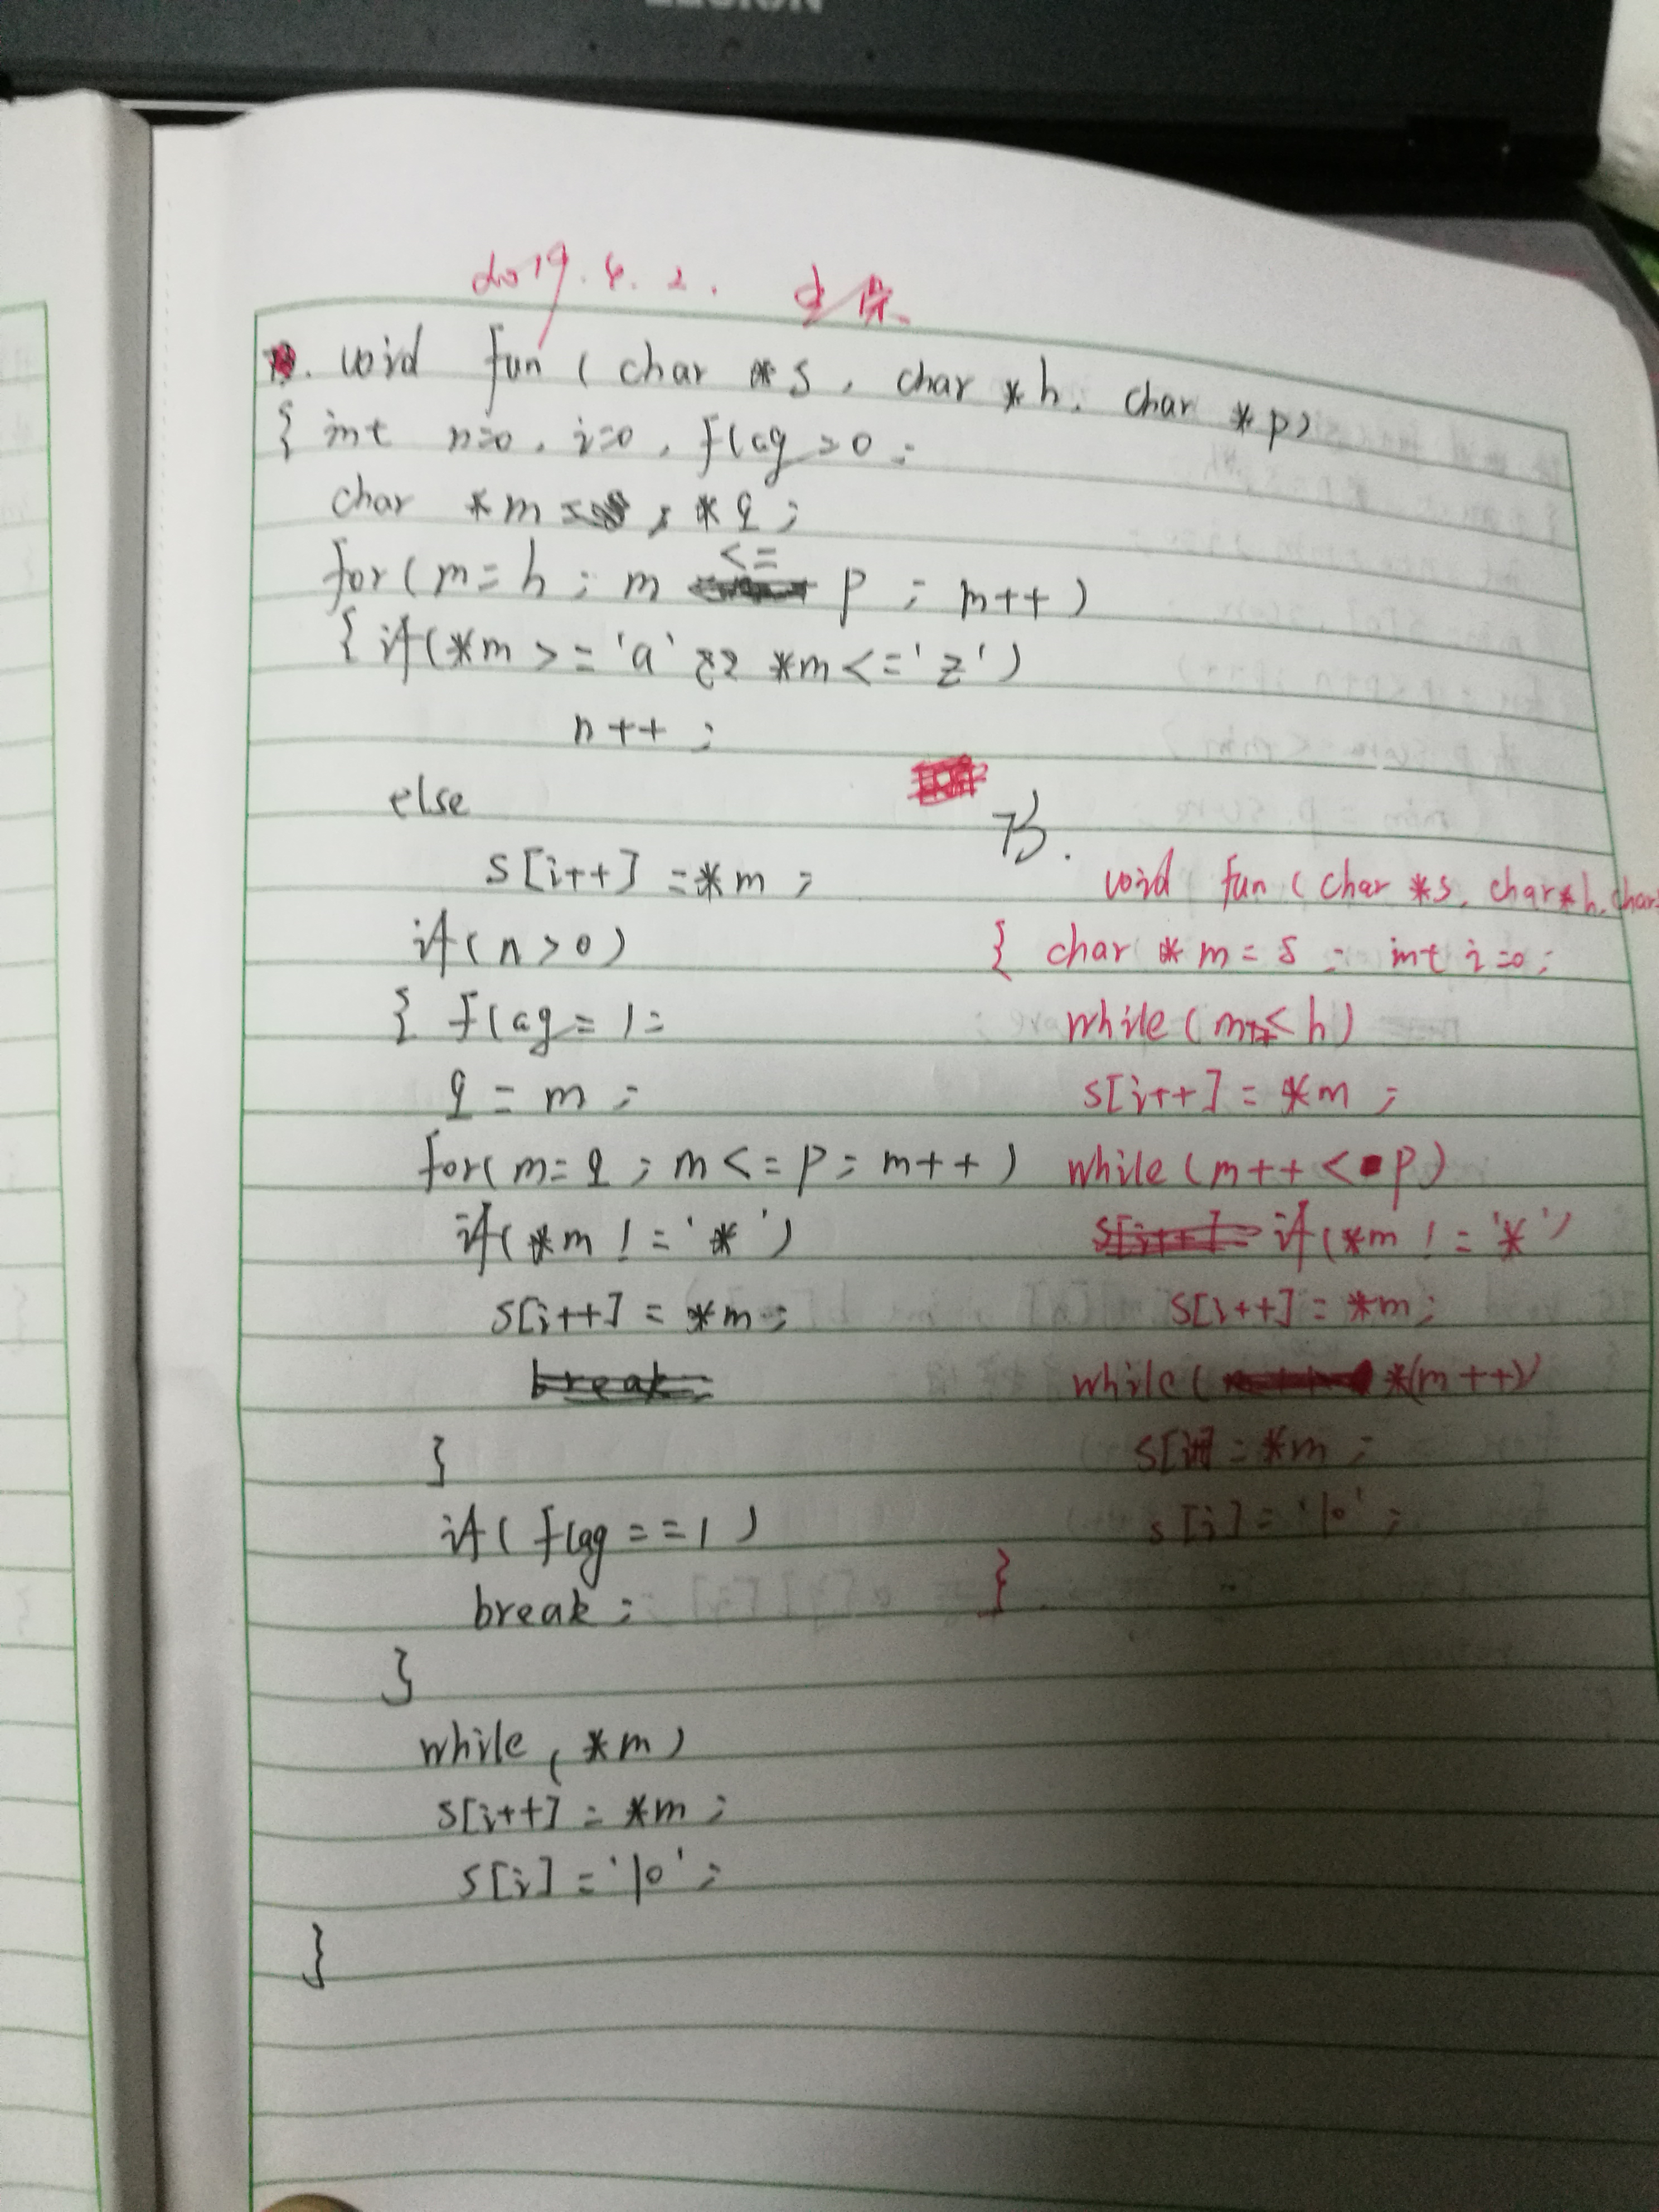 2019.4.2.
void fun ( char *s, char *h, char *p)
{ int n=0, i=0, flag=0;
char *m, *q;
for(m=h; m <= p; m++)
{ if(*m >= 'a' && *m <= 'z')
n++;
else
s[i++] = *m;
if(n>0)
{ flag=1;
q = m;
for(m=q; m<=p; m++)
if(*m != '*')
s[i++] = *m;
break;
}
if( flag==1)
break;
}
while(*m)
s[i++] = *m;
s[i] = '\0';
}
void fun (char *s, char *h, char
{ char *m = s; int i=0;
while (m++< h)
s[i++] = *m;
while (m++ < p)
s[i++] = if(*m != '*')
s[i++] = *m;
while( *(m++))
= *m;
s[i] = '\0';
}